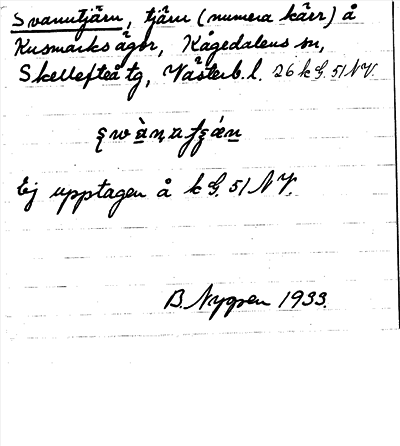 Svanutjärn, tjärn (numera kärr) å
Kusmarks ägor, Kågedalens sn,
Skellefteå tg, Västerb. l. 26 k G. 51 NV.
Ej upptagen å k G. 51 NV.
B. Nygren 1933.